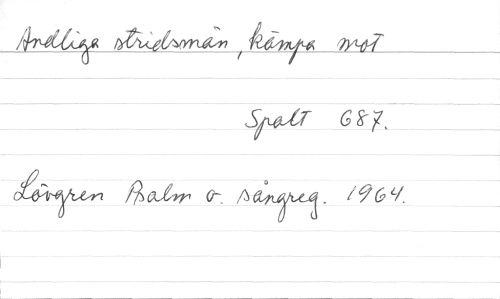 Andliga stridsmän, kämpa mot
Spalt 687.
Lövgren Psalm o. sångreg. 1964.